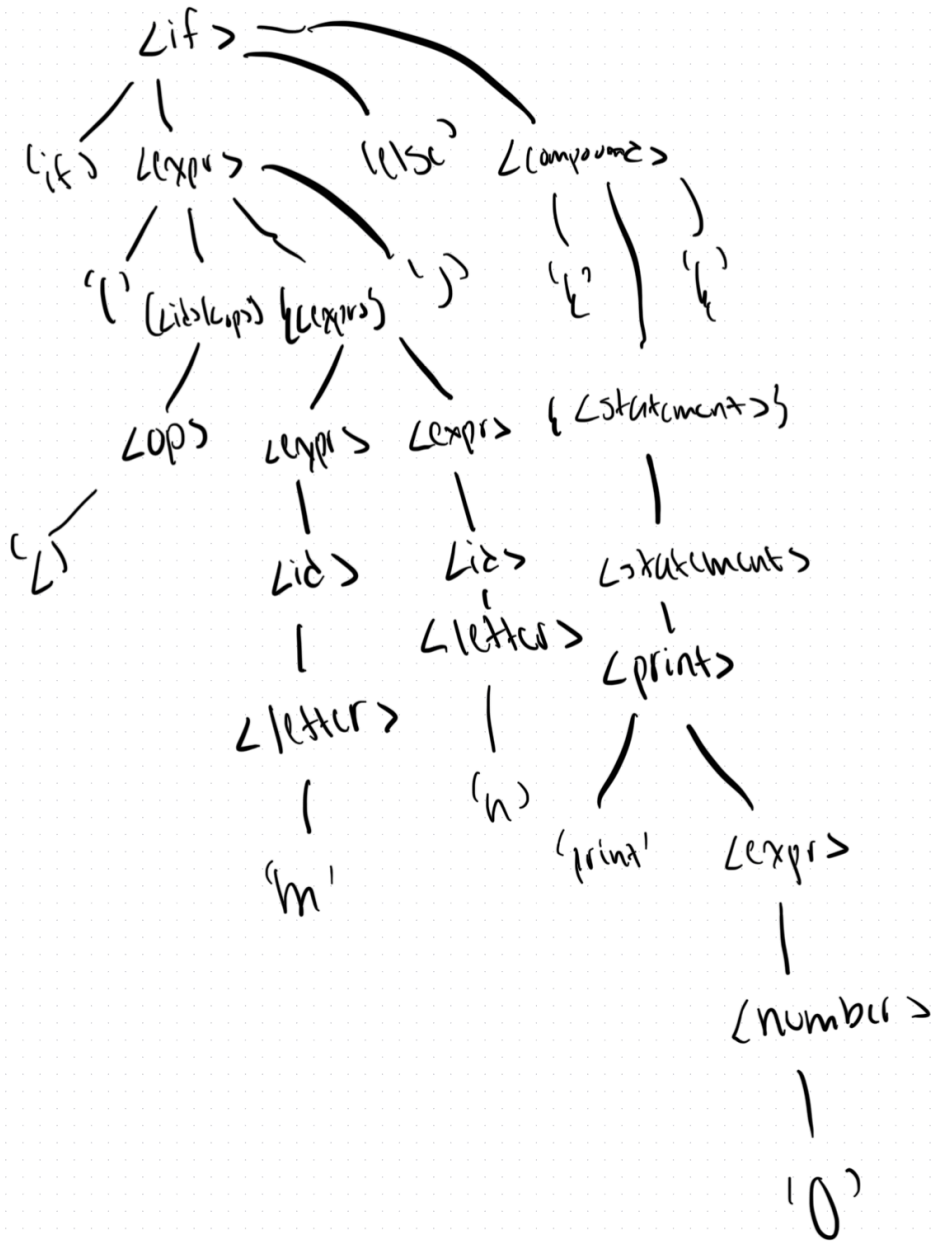 <if>
'if' <expr> 'else' <compound>
'(' (<id>|<op>) {<expr>} ')' '{' '}'
<op> <expr> <expr> {<statement>}
'<' <id> <id> <statement>
<letter> <letter> <print>
'm' 'n' 'print' <expr>
<number>
'0'